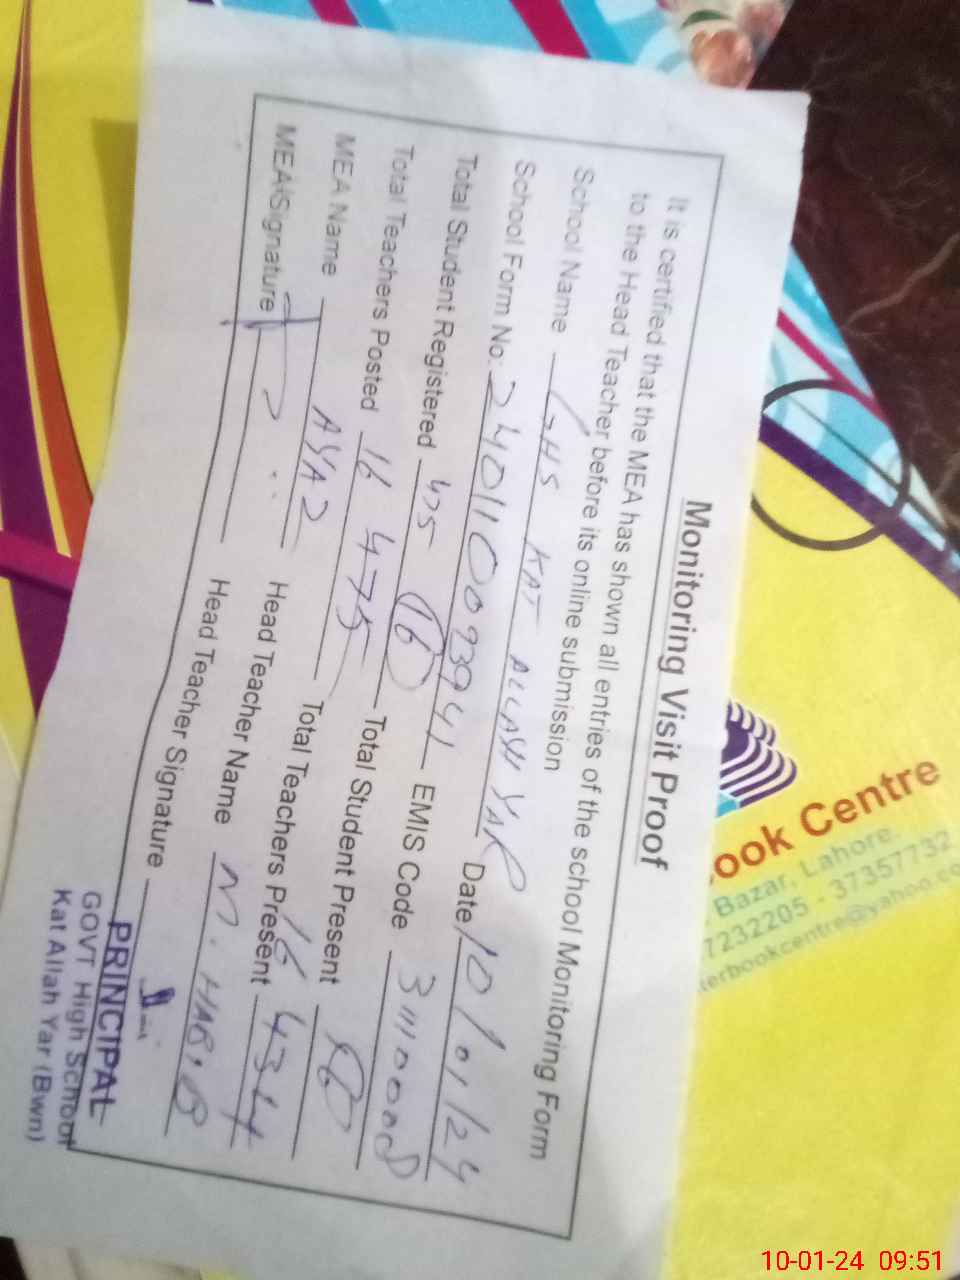 Monitoring Visit Proof
It is certified that the MEA has shown all entries of the school Monitoring Form
to the Head Teacher before its online submission
School Name GHS KAT ALLAH YAR
School Form No: 240110093941 Date 10/01/24
Total Student Registered 475 16 EMIS Code 31110008
Total Teachers Posted 16 475 Total Student Present
MEA Name AYAZ Total Teachers Present 16 434
MEA Signature Head Teacher Name M. HABIB
Head Teacher Signature
PRINCIPAL
GOVT High School
Kat Allah Yar (Bwn)
ook Centre
Bazar, Lahore.
7232205 - 37357732
terbookcentre@yahoo.co
10-01-24 09:51